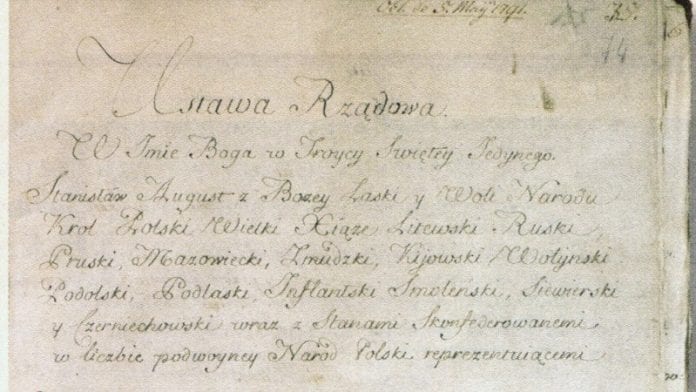 Obl. de 5. Maij 1791.
75.
14
Ustawa Rządowa.
W Imie Boga w Troycy Swiętey Jedynego.
Stanisław August z Bozey Łaski y Woli Narodu
Krol Polski Wielki Xiąze Litewski Ruski,
Pruski, Mazowiecki, Zmudzki, Kijowski Wołyński
Podolski, Podlaski, Inflantski Smoleński, Siewierski
y Czerniechowski wraz z Stanami Skonfederowanemi
w liczbie podwoyney Naród Polski reprezentuiącemi